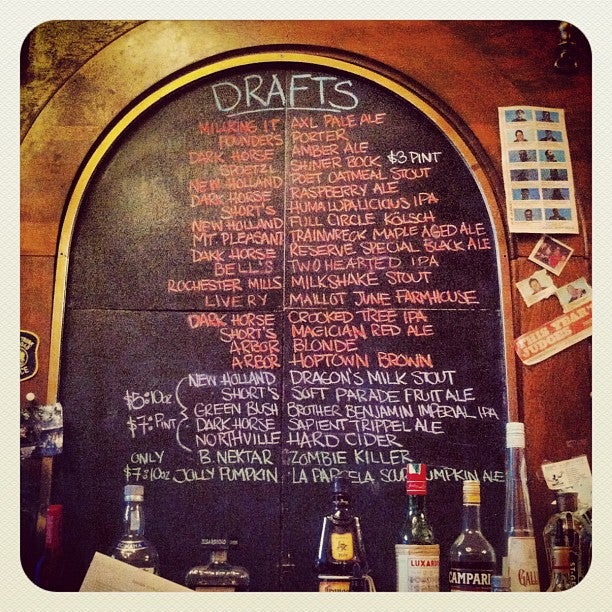 DRAFTS
MILKING IT AXL PALE ALE
FOUNDERS PORTER
DARK HORSE AMBER ALE
SPOETZL SHINER BOCK $3 PINT
NEW HOLLAND POET OATMEAL STOUT
DARK HORSE RASPBERRY ALE
SHORT'S HUMALUPALICIOUS IPA
NEW HOLLAND FULL CIRCLE KÖLSCH
MT PLEASANT TRAINWRECK MAPLE AGED ALE
DARK HORSE RESERVE SPECIAL BLACK ALE
BELL'S TWO HEARTED IPA
ROCHESTER MILLS MILKSHAKE STOUT
LIVERY MAILLOT JUNE FARMHOUSE
DARK HORSE CROOKED TREE IPA
SHORT'S MAGICIAN RED ALE
ARBOR BLONDE
ARBOR HOPTOWN BROWN
NEW HOLLAND DRAGON'S MILK STOUT
$5:10oz SHORT'S SOFT PARADE FRUIT ALE
GREEN BUSH BROTHER BENJAMIN IMPERIAL IPA
$7:PINT DARK HORSE SAPIENT TRIPPEL ALE
NORTHVILLE HARD CIDER
ONLY B. NEKTAR ZOMBIE KILLER
$7:10oz JOLLY PUMPKIN LA PARCELA SOUR PUMPKIN ALE
THIS YEAR'S
JUDGES
LUXARDO
CAMPARI
GALL